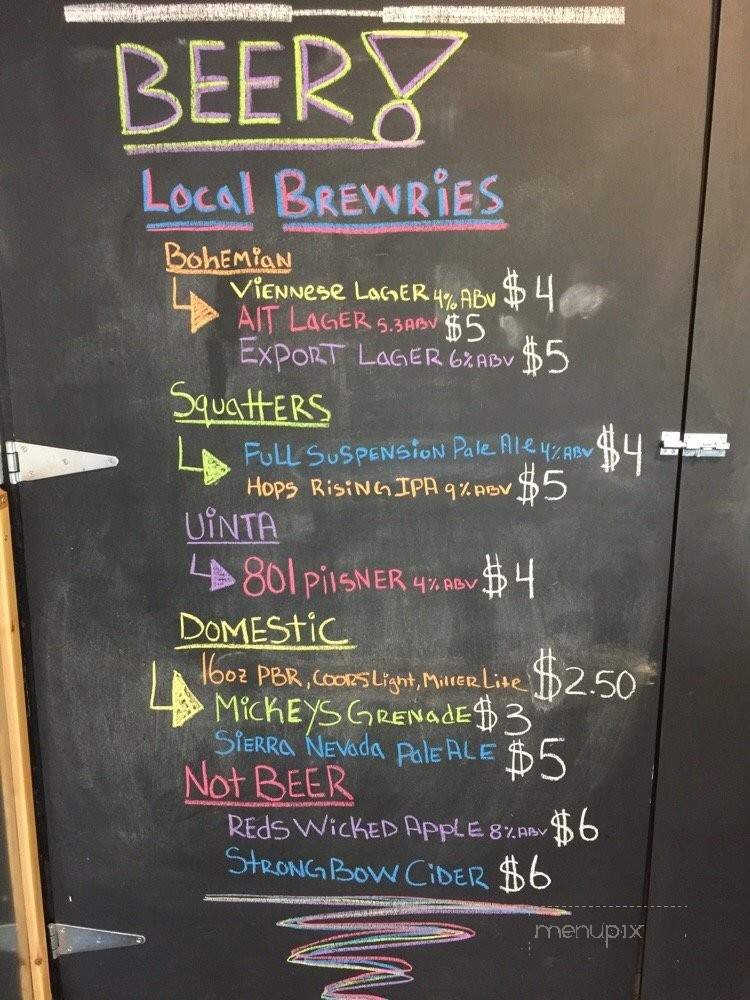 BEER!
Local BREWRiES
BohEMiaN
ViENNese LaGER 4% ABV $4
AlT LAGER 5.3 ABV $5
EXPORT LAGER 6% ABV $5
SquattERS
FULL SuSPENSioN Pale Ale 4% ABV $4
HOPS RiSiNG IPA 9% ABV $5
UiNTA
801 PilSNER 4% ABV $4
DOMEStiC
16oz PBR, COORS Light, MillER Lite $2.50
MiCKEYS GRENAdE $3
SiERRa NEVada PaleALE $5
Not BEER
REdS WiCKED APPlE 8% ABV $6
StRONGBOW CiDER $6
menupix